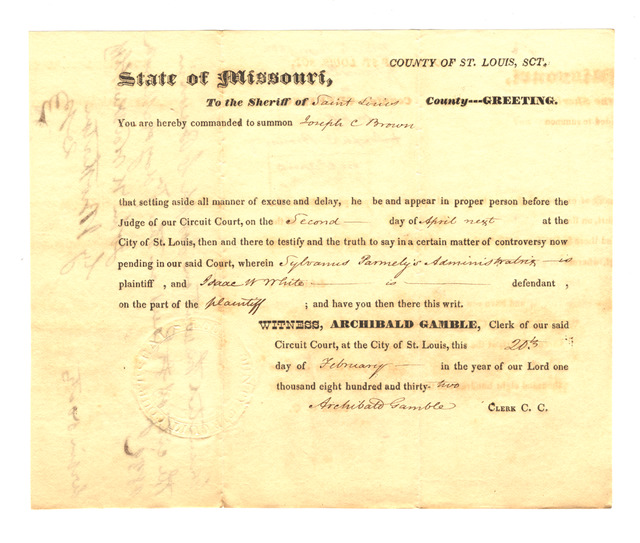 COUNTY OF ST. LOUIS, SCT.
State of Missouri,
To the Sheriff of Saint Louis County---GREETING.
You are hereby commanded to summon Joseph C Brown
that setting aside all manner of excuse and delay, he be and appear in proper person before the
Judge of our Circuit Court, on the Second day of April next at the
City of St. Louis, then and there to testify and the truth to say in a certain matter of controversy now
pending in our said Court, wherein Sylvanus Parmely's Administratrix is
plaintiff , and Isaac W White is defendant ,
on the part of the plaintiff ; and have you then there this writ.
WITNESS, ARCHIBALD GAMBLE, Clerk of our said
Circuit Court, at the City of St. Louis, this 20th
day of February in the year of our Lord one
thousand eight hundred and thirty-two
Archibald Gamble CLERK C. C.